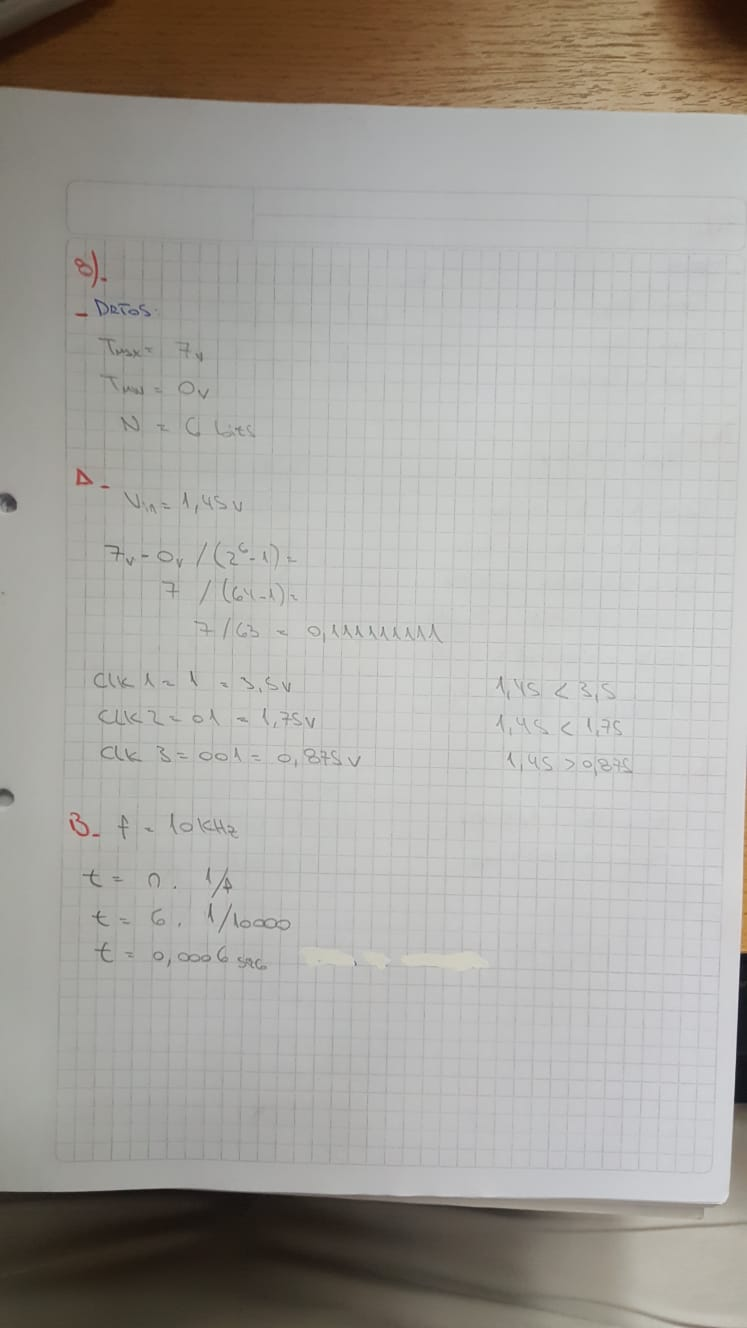 8).
- DATOS:
Tmax = 7v
Tmin = 0v
N = 6 bits
A -
Vin = 1,45v
7v - 0v / (2⁶-1) =
7 / (64-1) =
7/63 = 0,1111111111
Clk 1 = 1 = 3,5v 1,45 < 3,5
Clk 2 = 01 = 1,75v 1,45 < 1,75
Clk 3 = 001 = 0,875v 1,45 > 0,875
B- f = 10KHz
t = n . 1/f
t = 6 . 1/10000
t = 0,0006 seg